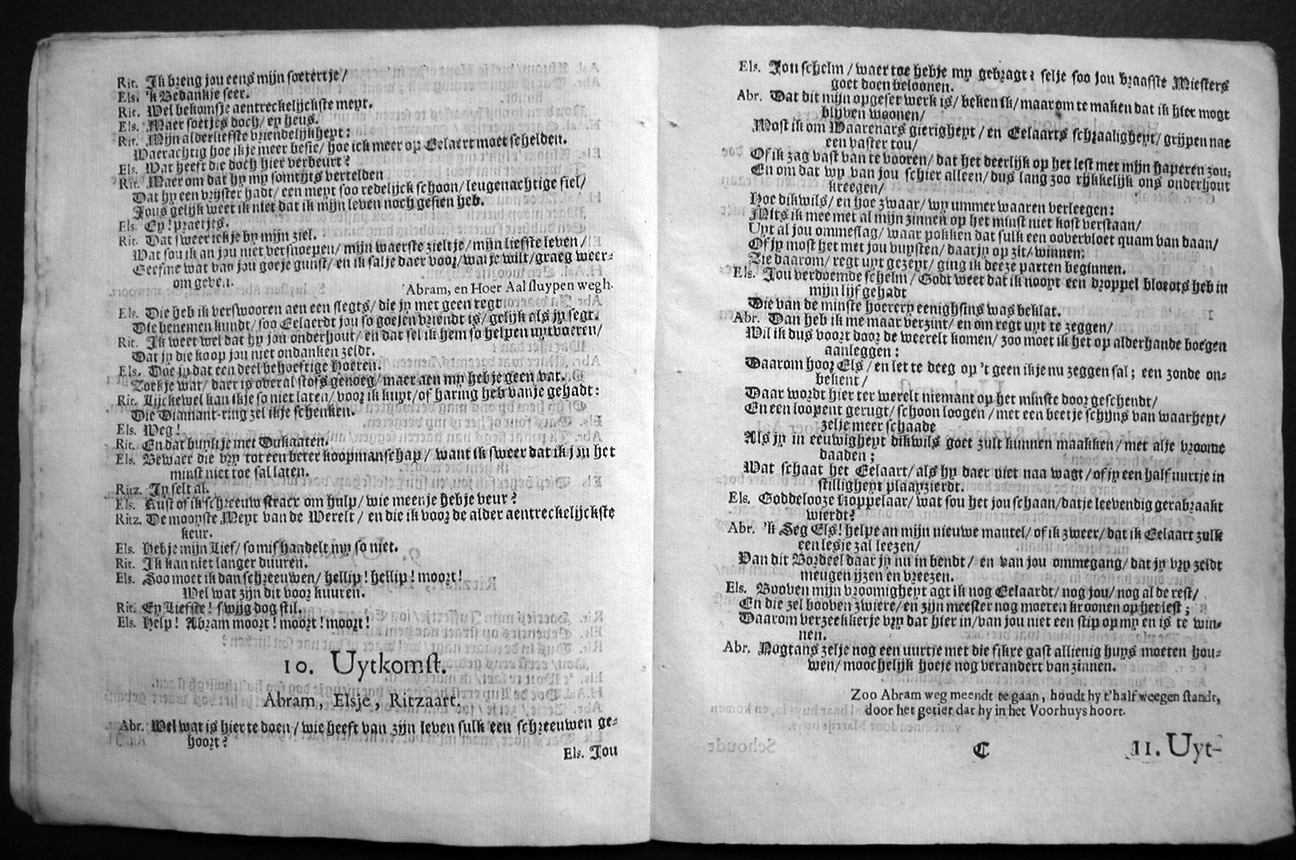 Rit. Ik breng jou eens mijn soetertje/
Els. 'k Bedankje seer.
Rit. Wel bekomsje aentreckelijckste meyt.
Els. Maer soetjes doch/ ey heus.
Rit. Mijn alderliefste vriendelijkheyt:
Waerachtig hoe ikje meer besie/ hoe ick meer op Eelaert moet schelden.
Els. Wat heeft die doch hier verbeurt?
Rit. Maer om dat hy my somtijts vertelden
Dat hy een vrijster hadt/ een meyt soo redelijck schoon/ leugenachtige fiel/
Jous gelijk weet ik niet dat ik mijn leven noch gesien heb.
Els. Ey! praetjes.
Rit. Dat sweer ickje by mijn ziel.
Wat sou ik an jou niet versnoepen/ mijn waerste zieltje/ mijn liefste leven/
Geefme wat van jou goeje gunst/ en ik salje daer voor/ wat je wilt/ graeg weer-
om geven.
Abram, en Hoer Aal sluypen wegh.
Els. Die verswooren aen een slegts/ die jy met geen regt
Die benemen kundt/ soo Eelaerdt jou so goejen vriendt is/ gelijk als jy segt.
Rit. Ik weet wel dat hy jou onderhout/ en dat sel ik hem so helpen uytvoeren/
Dat jy die koop jou niet ondanken zeldt.
Els. Doe jy dat een deel behoeftige Hoeren.
Zoekje wat/ daer is overal stofs genoeg/ maer aen my heb je geen vat.
Rit. Lijckewel kan ikje so niet laten/ voor ik kuyt/ of haring heb van je gehadt:
Die Diamant-ring zel ikje schenken.
Els. Weg!
Rit. En dat buyltje met Dukaaten.
Els. Bewaer die vry tot een beter koopmanschap/ want ik sweer dat ik jou het
minst niet toe sal laten.
Ritz. Jy selt al.
Els. Rust of ik schreeuw strack om hulp/ wie meen je heb je veur?
Ritz. De mooyste Meyt van de Werelt/ en die ik voor de alder aentreckelijckste
keur.
Els. Heb je mijn Lief/ so mishandelt my so niet.
Rit. Ik kan niet langer duuren.
Els. Soo moet ik dan schreeuwen/ hellip! hellip! moort!
Wel wat zijn dit voor kuuren.
Rit. Ey Liefste! swijg dog stil.
Els. Help! Abram moort! moort! moort!
10. Uytkomst.
Abram, Elsje, Ritzaart.
Abr. Wel wat is hier te doen/ wie heeft van zijn leven sulk een schreeuwen ge-
hoort?
Els. Jou
Els. Jou schelm/ waer toe hebje my gebragt? selje soo jou braafste Miesters
goet doen beloonen.
Abr. Dat dit mijn opgeset werk is/ beken ik/ maar om te maken dat ik hier mogt
blyven woonen/
Most ik om Waarenars gierigheyt/ en Eelaarts schraaligheyt/ grijpen nae
een vaster tou/
Of ik zag vast van te vooren/ dat het deerlijk op het lest met mijn haperen zou;
En om dat wy van jou schier alleen/ dus lang zoo rijkkelijk ons onderhout
kreegen/
Hoe dikwils/ en hoe zwaar/ wy ummer waaren verleegen:
Mits ik mee met al mijn zinnen op het minst niet kost verstaan/
Uyt al jou ommeslag/ waar pokken dat sulk een oovervloet quam van daan/
Of jy most het met jou vuysten/ daar jy op zit/ winnen:
Zie daarom/ regt uyt gezeyt/ ging ik deeze parten beginnen.
Els. Jou verdoemde schelm/ Godt weet dat ik nooyt een droppel bloets heb in
mijn lijf gehadt
Die van de minste hoerery eenighsins was beklat.
Abr. Dan heb ik me maar verzint/ en om regt uyt te zeggen/
Wil ik dus voort door de weerelt komen/ zoo moet ik het op alderhande boegen
aanleggen:
Daarom hoor Els/ en let te deeg op 't geen ik je nu zeggen sal; een zonde on-
bekent/
Daar wordt hier ter werelt niemant op het minste door geschendt/
En een loopent gerugt/ schoon loogen/ met een beetje schyns van waarheyt/
zelje meer schaade
Als jy in eeuwigheyt dikwils goet zult kunnen maakken/ met al je vroome
daaden;
Wat schaat het Eelaart/ als hy daer niet naa wagt/ of jy een half uurtje in
stilligheyt plaayzierdt.
Els. Goddelooze Koppelaar/ wat sou het jou schaan/ datje leevendig gerabraakt
wierdt?
Abr. 'k Seg Els! helpe an mijn nieuwe mantel/ of ik zweer/ dat ik Eelaart zulk
een lesje zal leezen/
Van dit Bordeel daar jy nu in bendt/ en van jou ommegang/ dat jy vry zeldt
meugen yzen en vreezen.
Els. Booven mijn vroomigheyt agt ik nog Eelaardt/ nog jou/ nog al de rest/
En die zel booven zwiere/ en zijn meester nog moeten kroonen op het lest;
Daarom verzeekkerje vry dat hier in/ van jou niet een stip op my en is te win-
nen.
Abr. Nogtans zelje nog een uurtje met die sikre gast allienig huys moeten hou-
wen/ moochelijk hoeje nog verandert van zinnen.
Zoo Abram weg meendt te gaan, houdt hy t'half weegen standt,
door het getier dat hy in het Voorhuys hoort.
C
11. Uyt-